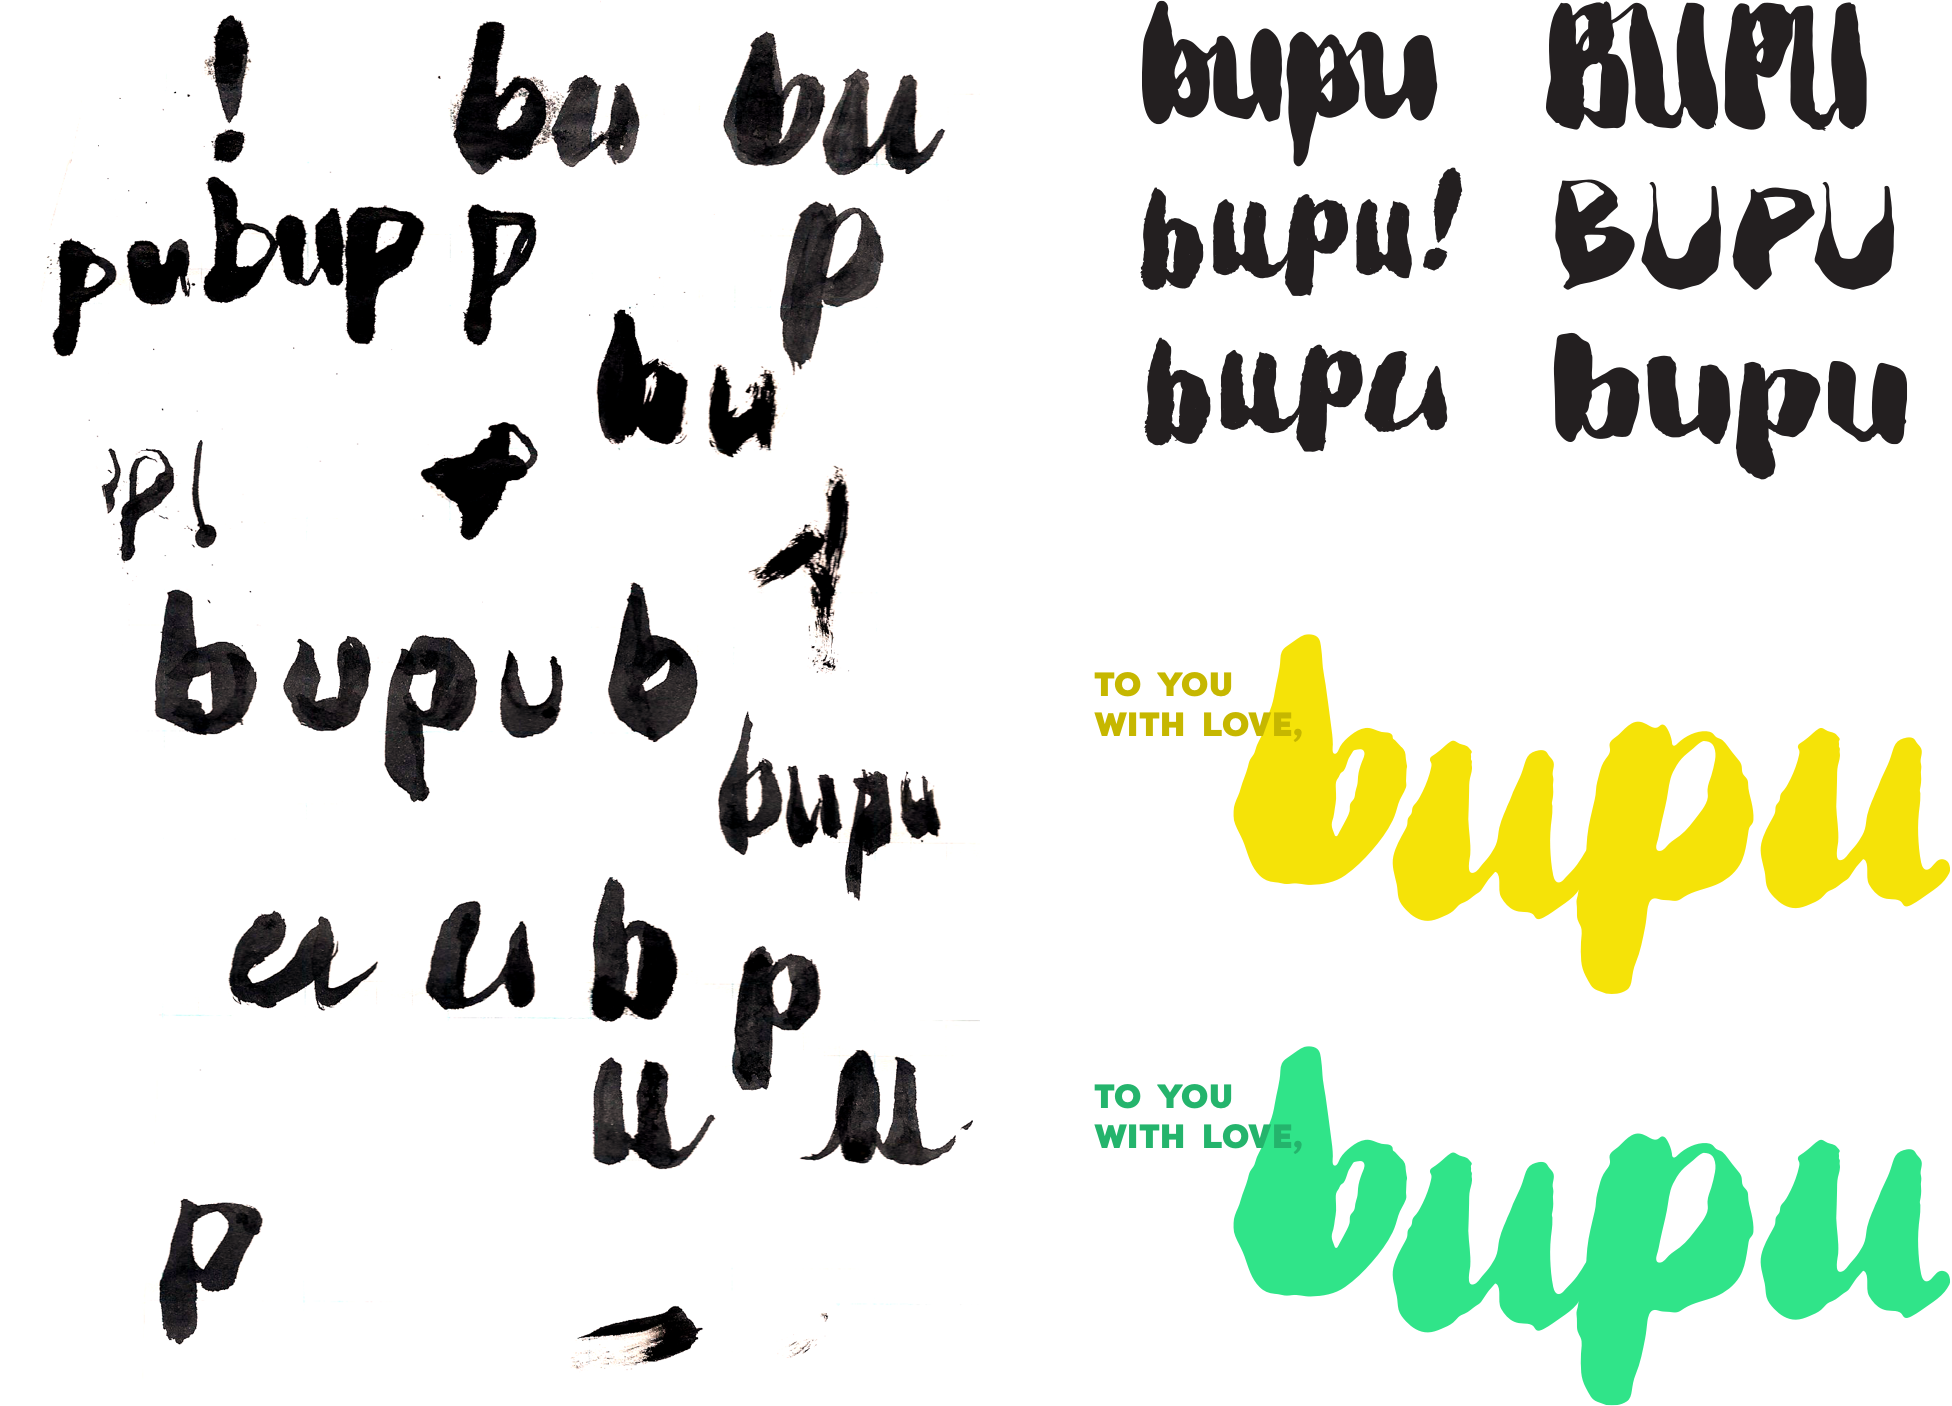 !
bu bu
pu bup p p
bu
p!
bupu b
bupu
u u b p
u u
p
bupu BUPU
bupu! BUPU
bupu bupu
TO YOU
WITH LOVE,
bupu
TO YOU
WITH LOVE,
bupu